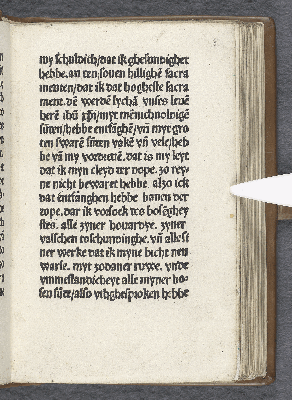 my schuldich/dat ik ghesundighet
hebbe. an ten souen hillighē sacra
menten/dat ik dat hogheste sacra
ment. dē werdē lychā vnses leuē
herē ihū xp̄i/myt mēnichuoldigē
sūten/hebbe entfāghē/vn̄ myt gro
ten sware sūten vakē vn̄ vele/heb
be vn̄ my vordemt. dat is my leyt
dat ik myn cleyd der dope. so rey
ne nicht bewaret hebbe. also ick
dat entfanghen hebbe bauen der
dope. dar ik vorsoek des bosēghey
stes. alle zyner houardye. zyner
valschen toschundinghe. vn̄ alle sy
ner werke dat ik myne bicht neu
warle. myt sodaner ruwe. vnde
ynnicheyt alle myner bo-
sen sūte/also vthghespraken hebbe